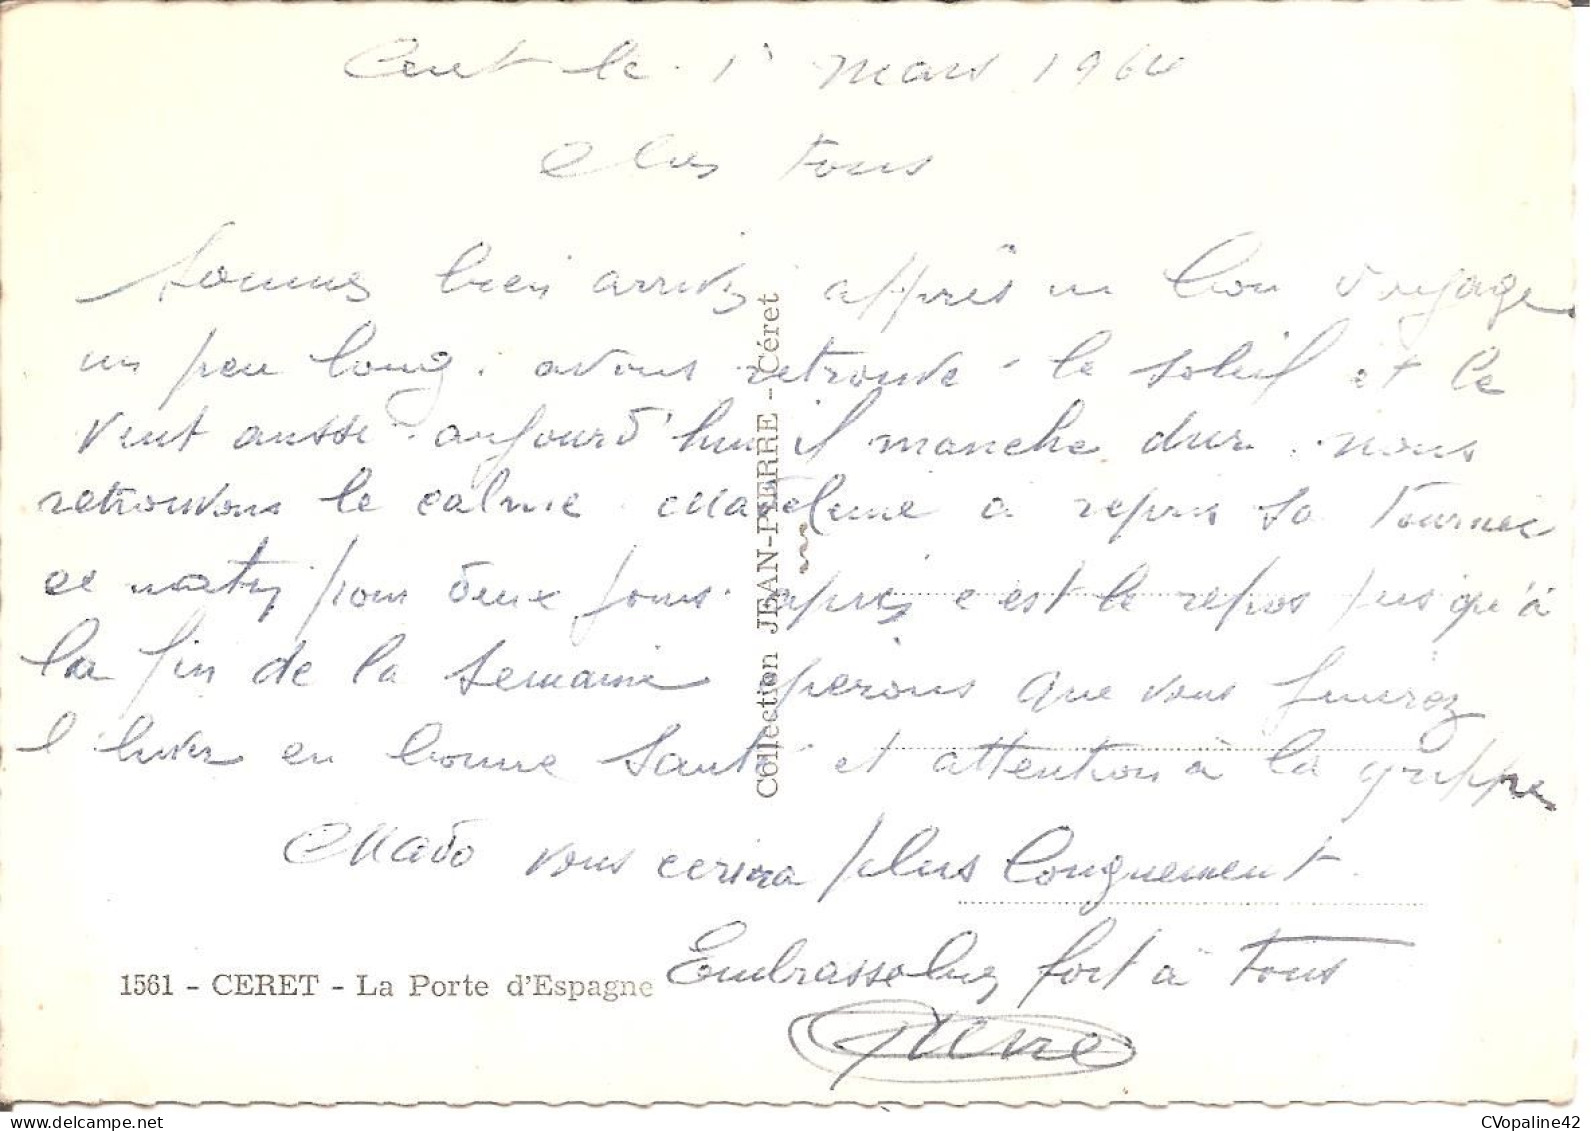 Ceret le 1er mars 1964
Chers tous
Sommes bien arrivés après un bon voyage
un peu long. avons retrouvé le soleil et le
vent aussi. aujourd'hui il manche dur. nous
retrouvons le calme. Madeleine a repris sa tournée
ce matin pour deux jours. après c'est le repos jusqu'à
la fin de la semaine sperons que vous finirez
l'hiver en bonne santé et attention à la grippe
Mado vous cerira plus longuement.
Embrassons fort à tous
Pierre
1561 - CERET - La Porte d'Espagne
Collection JEAN-PIERRE - Céret
CVopaline42